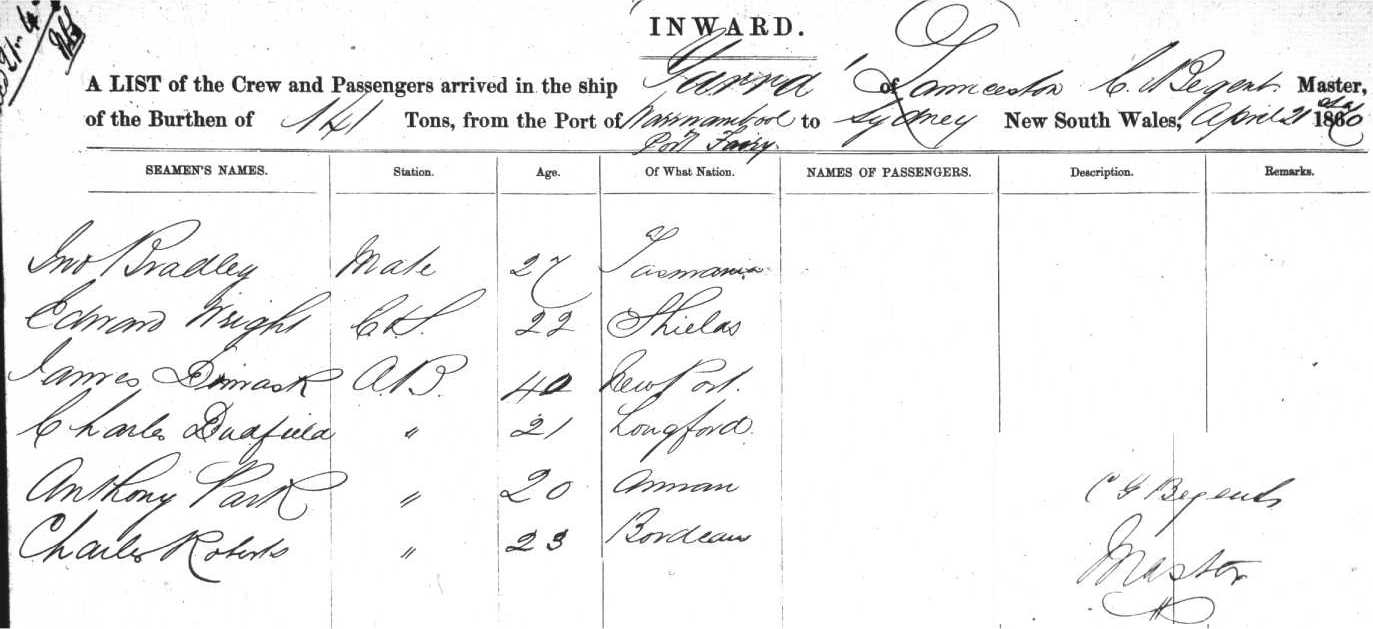 INWARD.
A LIST of the Crew and Passengers arrived in the ship Yarra of Launceston C. Begent Master,
of the Burthen of 141 Tons, from the Port of Warrnambool to Sydney New South Wales, April 21 1860
Port Fairy.
SEAMEN'S NAMES. Station. Age. Of What Nation. NAMES OF PASSENGERS. Description. Remarks.
Jno Bradley Mate 27 Tasmania
Edward Wright C & S. 22 Shields
James Dimask A.B. 40 New Port.
Charles Dudfield " 21 Longford
Anthony Park " 20 Annan
Charles Roberts " 23 Bordeau
C G Begent
Master